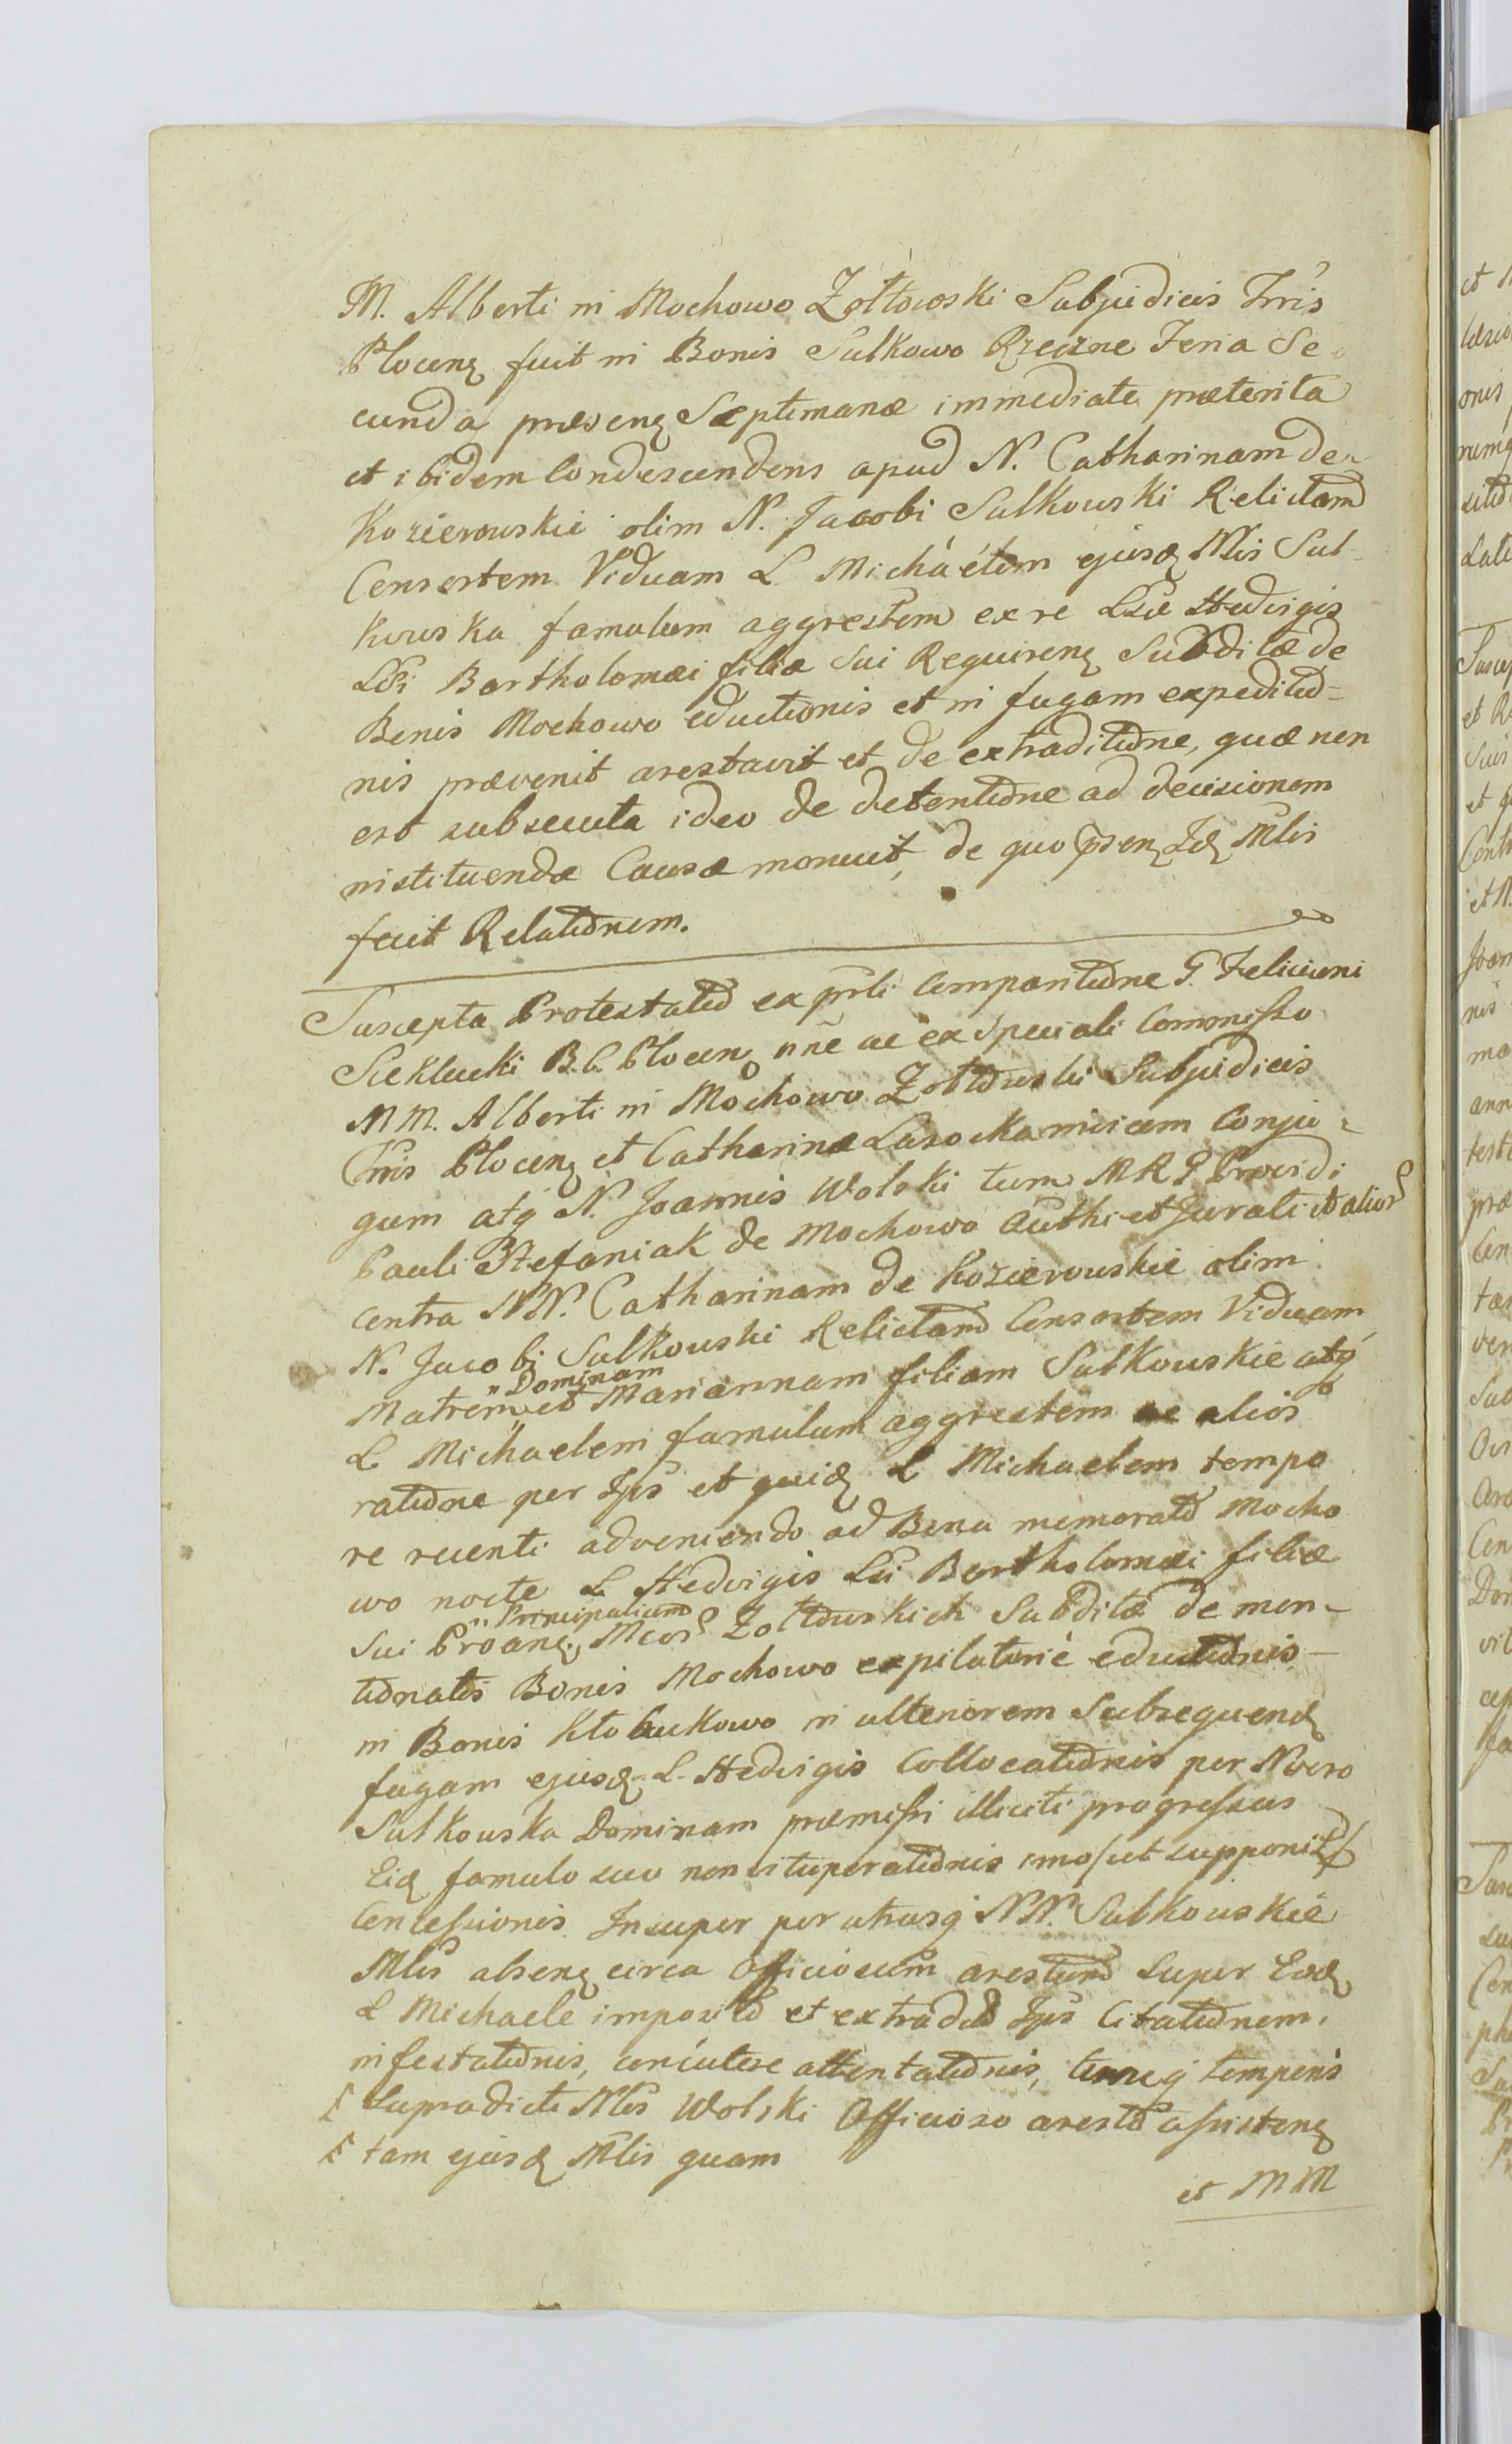 M. Alberti in Mochowo Zołtowski Subjudicis Trris
Plocen fuit in Bonis Sulkowo Rzeczne Feria Se
cunda præsen Septimanæ immediate præterita
et ibidem Condescendens apud N. Catharinam de
Kozierowskie olim N. Jacobi Sulkowski Relictam
Consortem Viduam L. Michaelem ejusd Nlis Sul
kowska famulum aggrestem ex re Lsæ Hedvigis
Lsi Bartholomæi filiæ sui Requiren Subditæ de
Bonis Mochowo eductionis et in fugam expeditio=
nis prævenit arestavit et de extraditione, quæ non
est subsecuta ideo de detentione ad decisionem
instituendæ Causæ monuit, de quo præsen Id Mlis
fecit Relationem.
Suscepta Protestatio ex prli Comparitione G. Feliciani
Sieklucki B. C. Plocen nne ac ex speciali Commisso
MM. Alberti in Mochowo Zołtowski Subjudicis
Trris Plocen et Catharinæ Lasocka invicem Conju=
gum atq N. Joannis Wolski tum MRG Providi
Pauli Stefaniak de Mochowo Authi et Jurati et alior
contra NN. Catharinam de Kozierowskie olim
N. Jacobi Sulkowski Relictam Consortem Viduam
Matrem "Dominam" et Mariannam filiam Sulkowskie atq
L. Michaelem famulum aggrestem ac alios
ratione per Ips et quid L Michaelem tempo
re recenti adveniendo ad Bona memorato Mocho
wo nocte L Hedvigis Lsi Bartholomæi filiæ
sui Proan "Principalium" Meor Zołtowskich Subditæ de men-
tionatis Bonis Mochowo expilatorie eductionis
in Bonis Kłobukowo in ulteriorem Subsequend
fugam ejusd L. Hedvigis Collocationis per N vero
Sulkowska Dominam præmissi illiciti progressus
Eid famulo suo non vituperationis imo ut supponit
Concessionis Insuper per utrasq NN. Sulkowskie
Mlis absen circa Officiosum arestum super Eod
L Michaele imposito et extradit Ips Citationem,
infestationis, concutere attentationis, tumq temporis
supradicti Nlis Wolski Officioso aresto assisten
tam ejusd Mlis quam
et MM